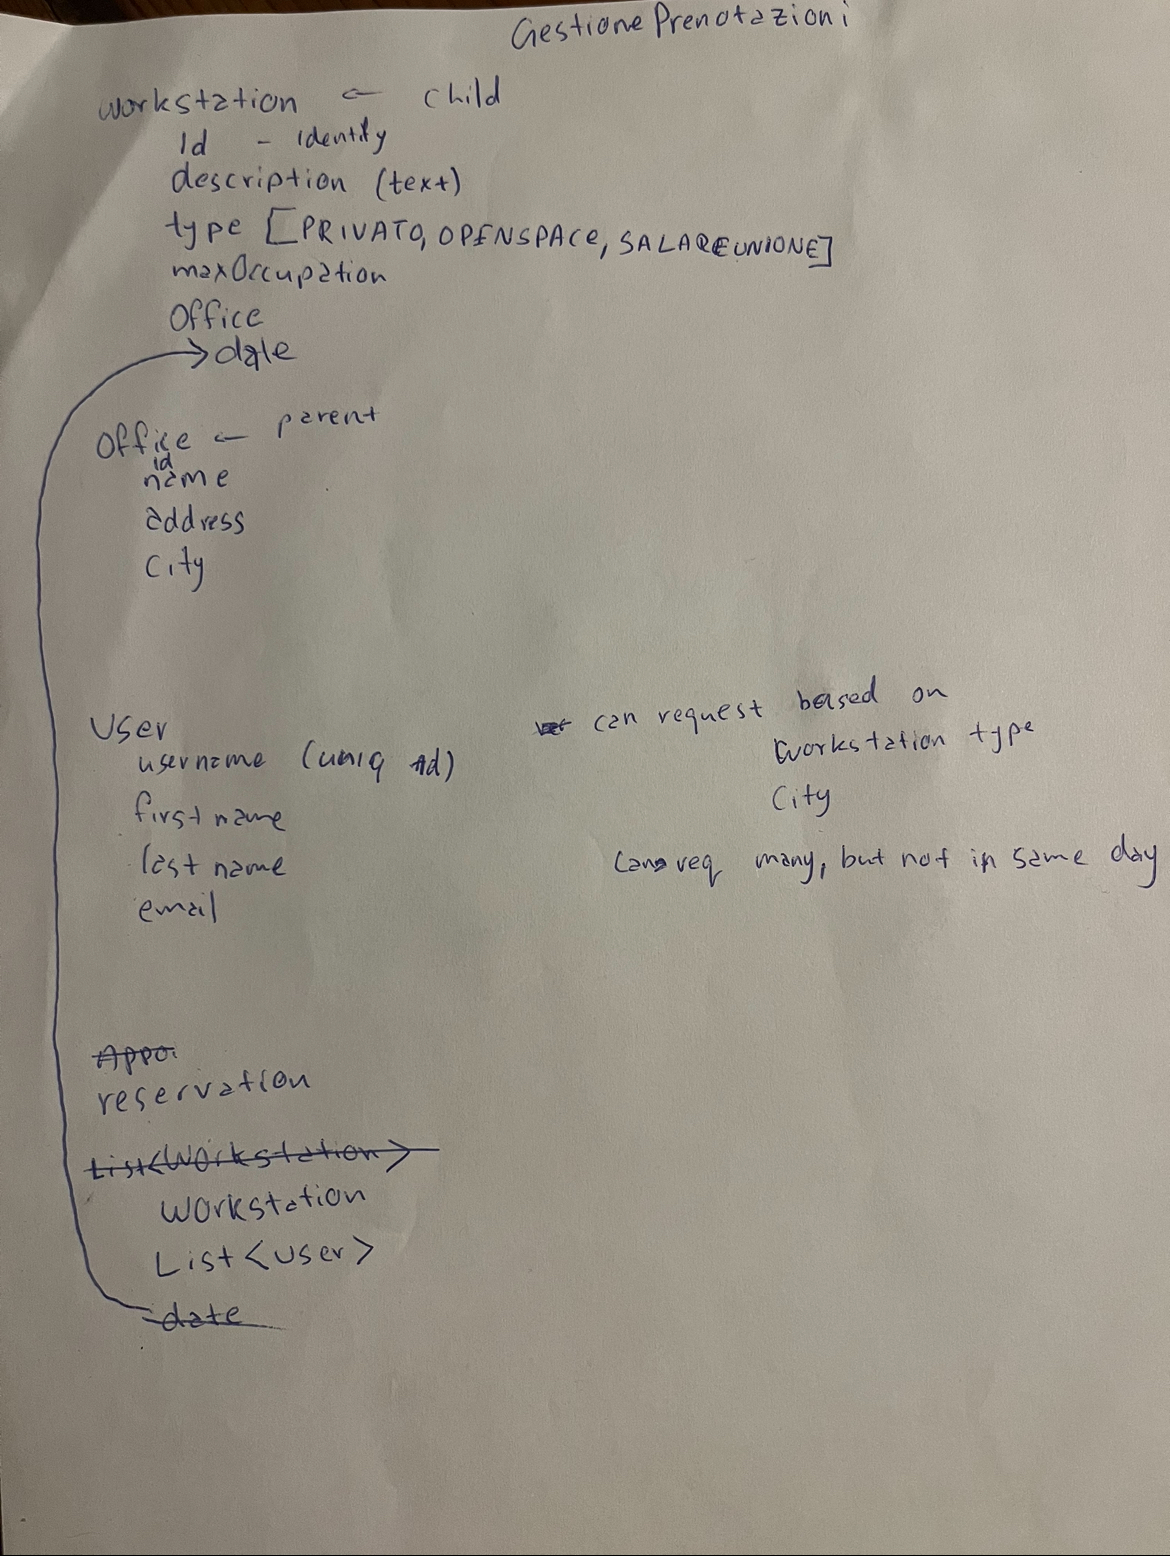 GestionePrenotazioni
workstation ← child
Id - identify
description (text)
type [PRIVATO, OPENSPACE, SALAREUNIONE]
maxOccupation
Office
→ date
Office ← parent
id
name
address
City
User
username (uniq id)
first name
last name
email
can request based on
Workstation type
City
Can req many, but not in same day
Appo
reservation
List<Workstation>
Workstation
List<User>
date